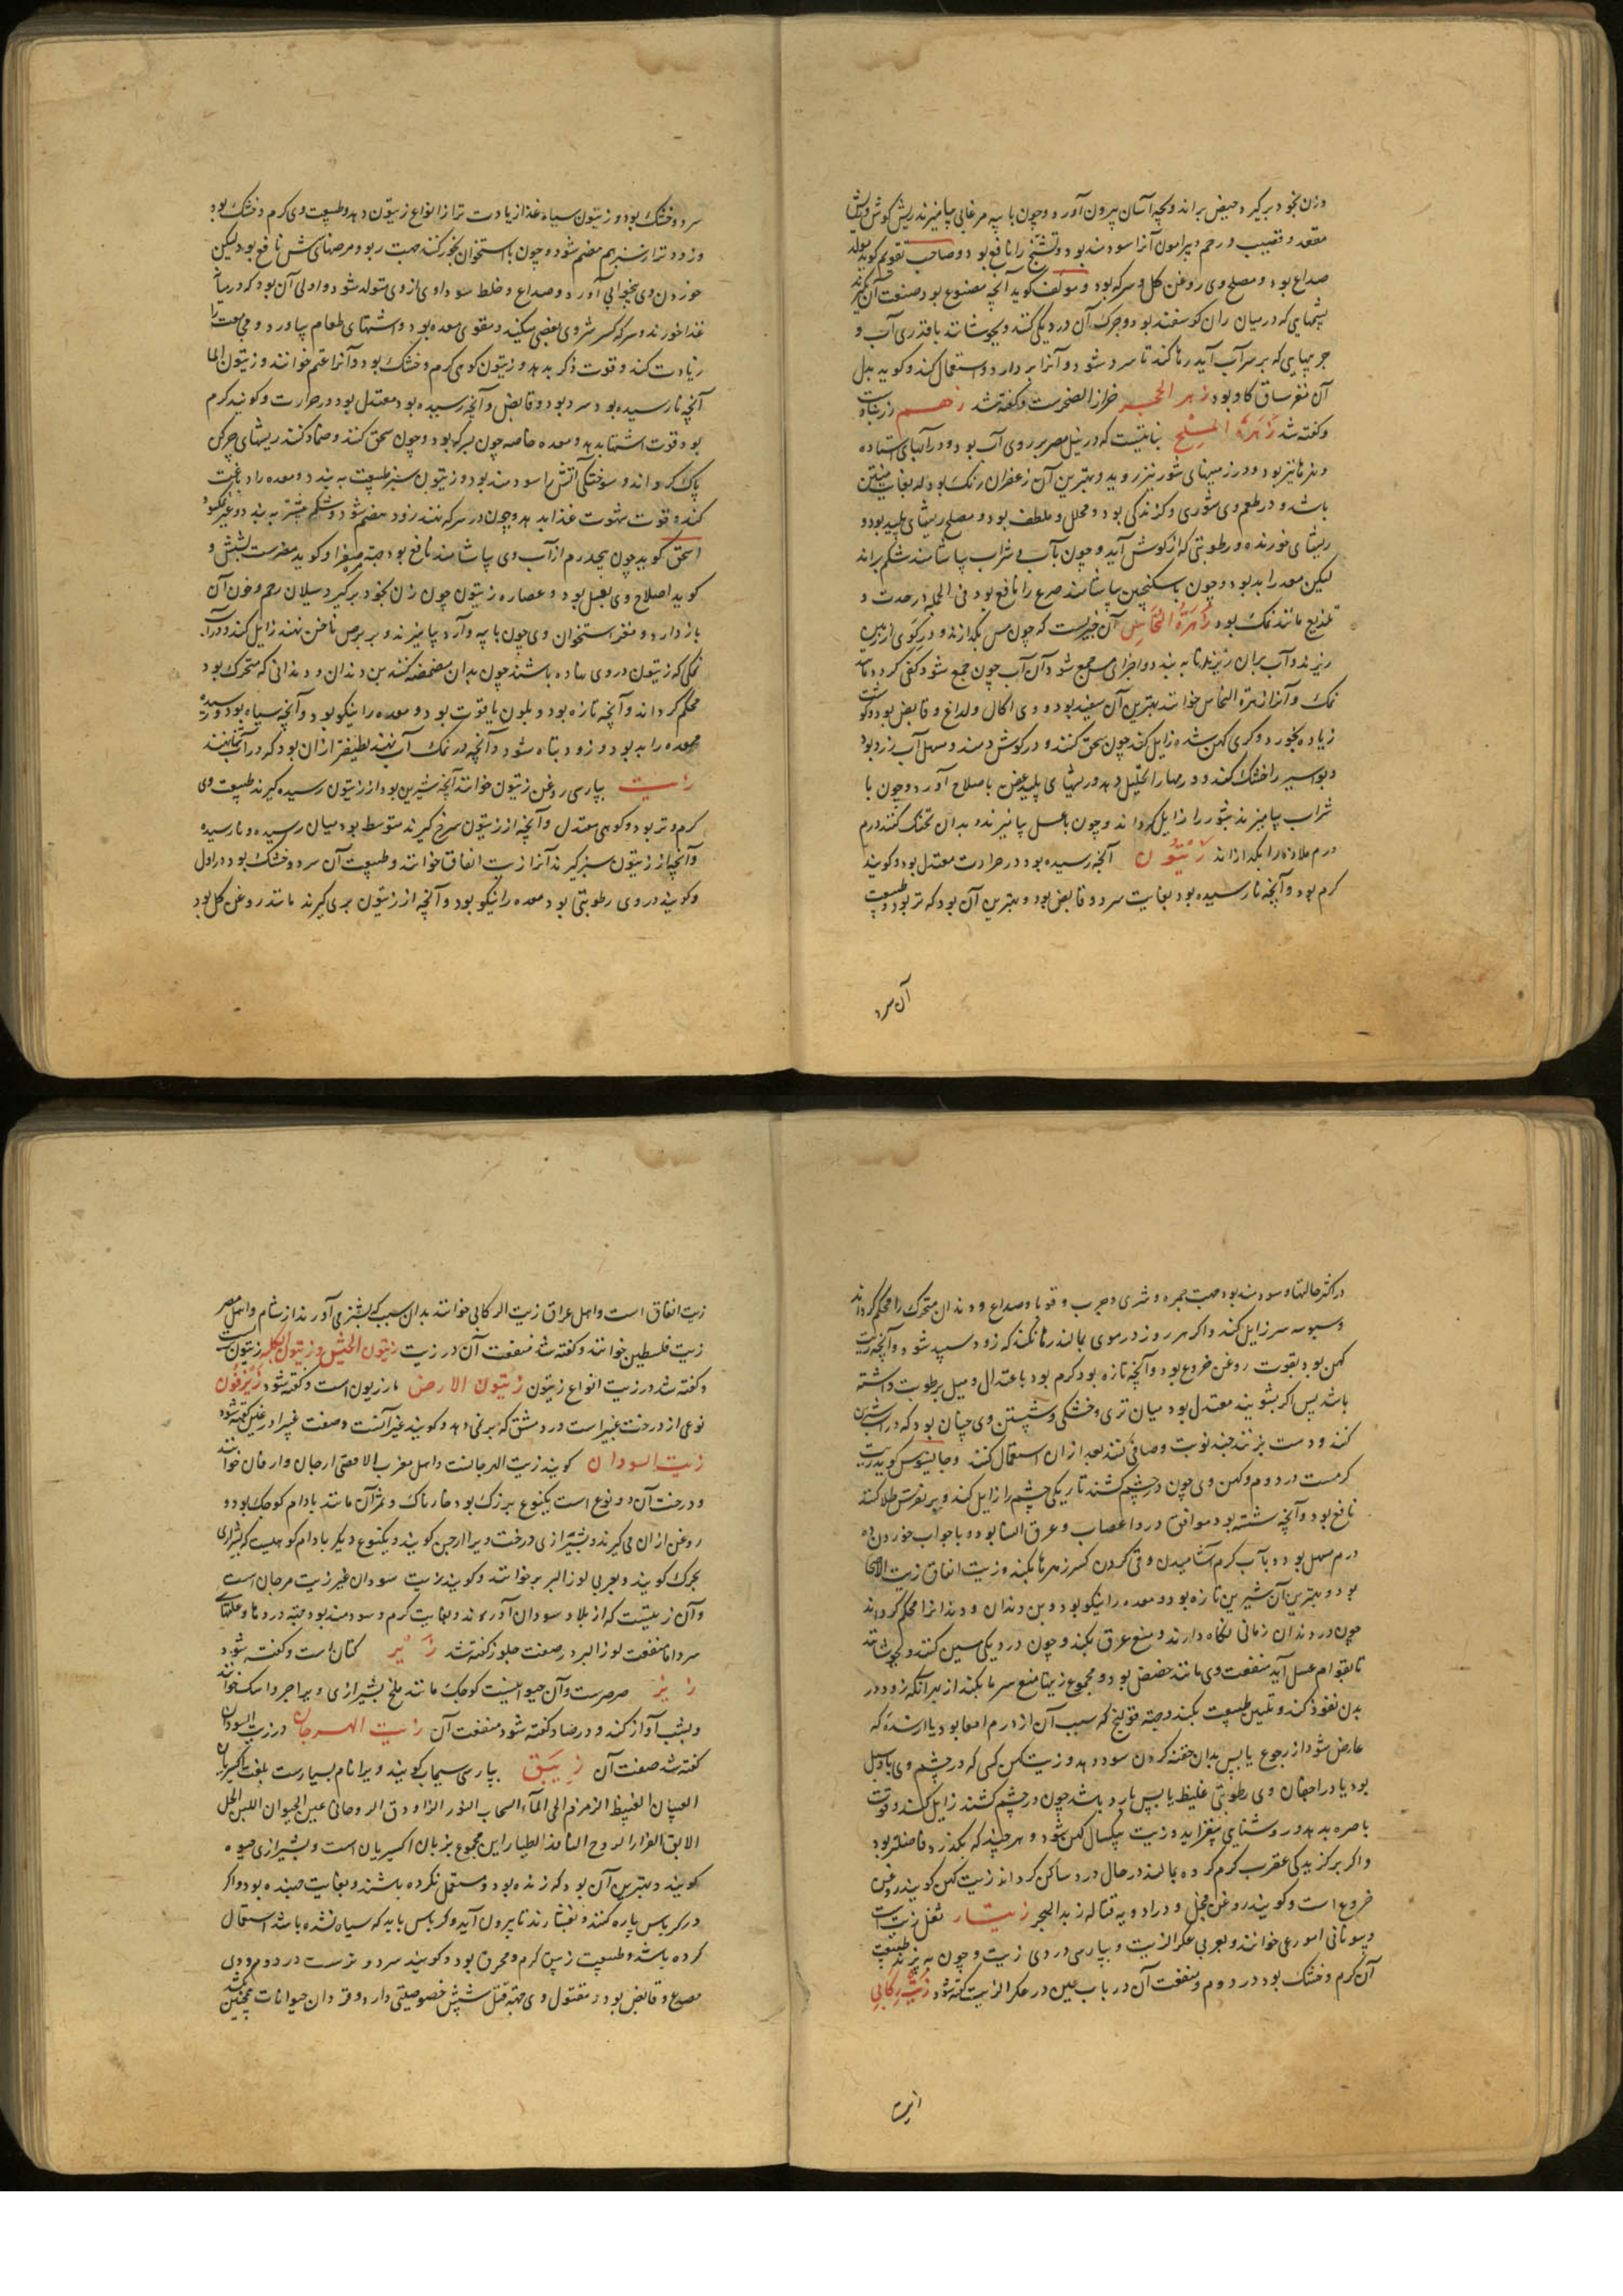 وزن بخود برگیرد حیض براند و بچه آسان بیرون آورد و چون با پیه مرغابی بیامیزند ریش گوش و ریش
مقعد و قضیب و رحم و پیرامون آنرا سودمند بود و تشنج را نافع بود و صاحب تقویم گوید مولد
صداع بود و مصلح وی روغن گل و سرکه بود و مؤلف گوید آنچه مصنوع بود صنعت آن بگیرند
پشمهایی که در میان ران گوسفند بود و چرک آن در دیگی کنند و بجوشانند با قدری آب و
چربیهایی که بر سر آب آید رها کند تا سرد شود و آنرا بردارد و استعمال کند و گوید بدل
آن مغز ساق گاو بود زهر الحجر خزاز الصخرست و گفته شد زهم
و گفته شد زهرة الملح نباتیست که در نیل مصر بر روی آب بود و در آبهای استاده
دیگر نیز بود و در زمینهای شور نیز روید و بهترین آن زعفران رنگ بود که بغایت منتن
باشد و در طعم وی شوری و گزندگی بود و محلل و ملطف بود و مصلح ریشهای پلید بود و
ریشهای خورنده و رطوبتی که از گوش آید و چون با آب یا شراب بیاشامند شکم براند
لیکن معده را بد بود و چون با سکنجبین بیاشامند صرع را نافع بود فی الجمله در حدت و
تلذیع مانند نمک بود زهرة النحاس آن چیزیست که چون مس بگدازند و در گوی از زمین
ریزند و آب بران ریزند تا به بندد و اجزای مس جمع شود آن آب چون جمع شود کفی گردد مانند
نمک و آنرا زهرة النحاس خوانند بهترین آن سفید بود و وی اکال و لداغ و قابض بود و گوشت
زیاده بخورد و کری کهن شده زایل کند چون سحق کنند و در گوش دمند و مسهل آب زرد بود
و بواسیر را خشک کند و ورمها را تحلیل دهد و ریشهای پلید عفن باصلاح آورد و چون با
شراب بیامیزند بثور را زایل گرداند و چون با عسل بیامیزند و بدان تحنک کنند ورم
ورم ملازه را بگدازاند زیتون آنچه رسیده بود در حرارت معتدل بود و گویند
گرم بود و آنچه نارسیده بود بغایت سرد و قابض بود و بهترین آن بود که تر بود و طبیعت
آن سرد
سرد و خشک بود و زیتون سیاه غذا زیادت تر از انواع زیتون دهد و طبیعت وی گرم و خشک بود
و زودتر از سبز هم هضم شود و چون با استخوان بخور کنند جهت ربو و مرضهای شش نافع بود لیکن
خوردن وی بیخوابی آورد و صداع و خلط سوداوی از وی متولد شود و اولی آن بود که در میان
غذا خورند و سرکه کسر شر وی بعضی میکند و مقوی معده بود و اشتهای طعام بیاورد و مجامعت را
زیادت کند و قوت ذکر بدهد و زیتون کوهی گرم و خشک بود و آنرا عتم خوانند و زیتون الما
آنچه نارسیده بود سرد بود و قابض و آنچه رسیده بود معتدل بود در حرارت و گویند گرم
بود قوت اشتها بدهد و معده خاصه چون بسرکه بود و چون سحق کنند و ضماد کنند ریشهای چرکن
پاک گرداند و سوختگی آتش را سودمند بود و زیتون سبز طبیعت به بندد و معده را دباغت
کند و قوت شهوت غذا بدهد و چون در سرکه نهند زود هضم شود و شکم بیشتر به بندد و غیر نمکسود
اسحق گوید چون پنجدرم از آب وی بیاشامند نافع بود جهة صفرا و گوید مضرست بشش و
گوید اصلاح وی بعسل بود و عصاره زیتون چون زن بخود برگیرد سیلان رحم و خون آن
بازدارد و مغز استخوان وی چون با پیه و آرد بیامیزند و بر برص ناخن نهند زایل کند و درآب
نمکی که زیتون در وی نهاده باشند چون بدان مضمضه کنند بن دندان و دندانی که متحرک بود
محکم گرداند و آنچه تازه بود و بلون یاقوت بود و معده را نیکو بود و آنچه سیاه بود و رسیده
معده را بد بود و زود تباه شود و آنچه در نمک آب نهند لطیفتر ازان بود که در آب نهند
زیت بپارسی روغن زیتون خوانند آنچه شیرین بود از زیتون رسیده گیرند طبیعت وی
گرم و تر بود و گوهی معتدل و آنچه از زیتون سرخ گیرند متوسط بود میان رسیده و نارسیده
و آنچه از زیتون سبز گیرند آنرا زیت انفاق خوانند و طبیعت آن سرد و خشک بود در اول
و گویند در وی رطوبتی بود معده را نیکو بود و آنچه از زیتون بری گیرند مانند روغن گل بود
در اکثر حالتها و سودمند بود جهت جمره و شری و جرب و قوبا و صداع و دندان متحرک را محکم گرداند
و سبوسه سر زایل کند و اگر هر روز در موی بمالند رها نکند که زود سپید شود و آنچه زیت
کهن بود بقوت روغن خروع بود و آنچه تازه بود گرم بود باعتدال و میل برطوبت داشته
باشد پس اگر بشویند معتدل بود میان تری و خشکی و شستن وی چنان بود که در آب شیرین
کنند و دست بزنند چند نوبت و صافی کنند بعد ازان استعمال کنند و جالینوس گوید زیت
گرمست در دوم و کهن وی چون در چشم کشند تاریکی چشم را زایل کند و بر نقرس طلا کنند
نافع بود و آنچه شسته بود موافق درد اعصاب و عرق النسا بود و با جو آب خوردن ده
درم مسهل بود و با آب گرم آشامیدن و قی کردن کسر زهرها بکند و زیت انفاق زیت الاصحا
بود و بهترین آن شیرین تازه بود و معده را نیکو بود و بن دندان و دندانرا محکم گرداند
چون در دندان زمانی نگاه دارند و منع عرق بکند و چون در دیگی مسین کنند و بجوشانند
تا بقوام عسل آید منفعت وی مانند حضض بود و مجموع زیتها منع سرما بکند از بهر آنکه زود در
بدن نفوذ کند و تلیین طبیعت بکند و جهة قولنج که سبب آن از ورم امعا بود یا از سده که
عارض شود از رجیع یابس بدان حقنه کردن سود دهد و زیت کهن کسی که در چشم وی یا سبل
بود یا در اجفان وی رطوبتی غلیظ یا بس بارد باشد چون در چشم کشند زایل کند و قوت
باصره بدهد و روشنایی بیفزاید و زیت یکسال کهن شود و هر چند که بگذرد فاضلتر بود
و اگر بر گزیدگی عقرب گرم کرده بمالند در حال درد ساکن گرداند زیت کهن گویند روغن
خروع است و گویند روغن فجل و در ادویه قتاله زبد البحر زیتار ثفل زیت است
و یونانی امورغی خوانند و بعربی عکر الزیت و بپارسی دردی زیت و چون به پزند طبیعت
آن گرم و خشک بود در دوم و منفعت آن در باب عین در عکر الزیت گفته شود زیت رکابی
زیت انفاق است و اهل عراق زیت الرکابی خوانند بدان سبب که بشتر می آورند از شام و اهل مصر
زیت فلسطین خوانند و گفته شد منفعت آن در زیت زیتون الحبش و زیتون الکلبه زیتون است
و گفته شد در زیت انواع زیتون زیتون الارض مازریون است و گفته شود زیزفون
نوعی از درخت غبیرا است در دمشق که بر نمی دهد و گویند غیر آنست و صفت غبیرا در غین گفته شود
زیت السودان گویند زیت الهرجانست و اهل مغرب الاقصی ارجان و ارقان خوانند
و درخت آن دو نوع است یکنوع بزرگ بود خارناک و ثمر آن مانند بادام کوچک بود و
روغن ازان می گیرند و بشیرازی درخت ویرا ارجن گویند و یکنوع دیگر بادام کوهیست که بشیرازی
بخرک گویند و بعربی لوز البربر خوانند و گویند زیت سودان غیر زیت هرجان است
و آن زیتیست که از بلاد سودان آورند و بغایت گرم و سودمند بود جهة دردها و علتهای
سرد اما منفعت لوز البر در صفت جلوز گفته شد زیر کتان است و گفته شود
زیز صرصرست و آن حیوانیست کوچک مانند ملخ بشیرازی ویرا جرواسک خوانند
و بشب آواز کند و در صاد گفته شود منفعت آن زیت الهرجان در زیت السودان
گفته شد صفت آن زیبق بپارسی سیماب گویند و ویرا نام بسیارست بلغت اکسیریان
الفرار الروح النافذ الطیار این مجموع بزبان اکسیریان است و بشیرازی جیوه
گویند و بهترین آن بود که زنده بود و مستعمل نکرده باشند و بغایت جهنده بود و اگر
در کرباس پاره کنند و بفشارند تا بیرون آید و کرباس باید که سیاه نشده باشد استعمال
کرده باشد و طبیعت زیبق گرم و محرق بود و گویند سرد و ترست در دوم و وی
مصدع و قابض بود و مقتول وی جهة قتل شپش خصوصیتی دارد و قردان حیوانات همچنین